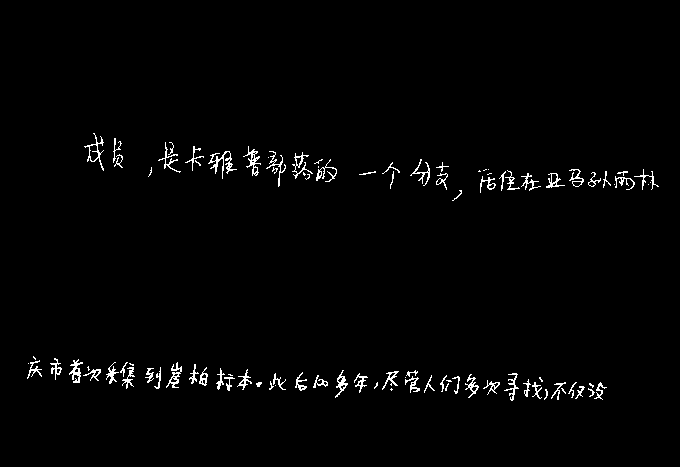 成员,是卡雅普部落的一个分支,居住在亚马孙雨林
庆市首次采集到崖柏标本。此后的多年,尽管人们多次寻找,不仅没